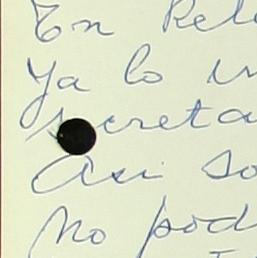 En Rel
Ya lo
secreta
Asi so
No pod